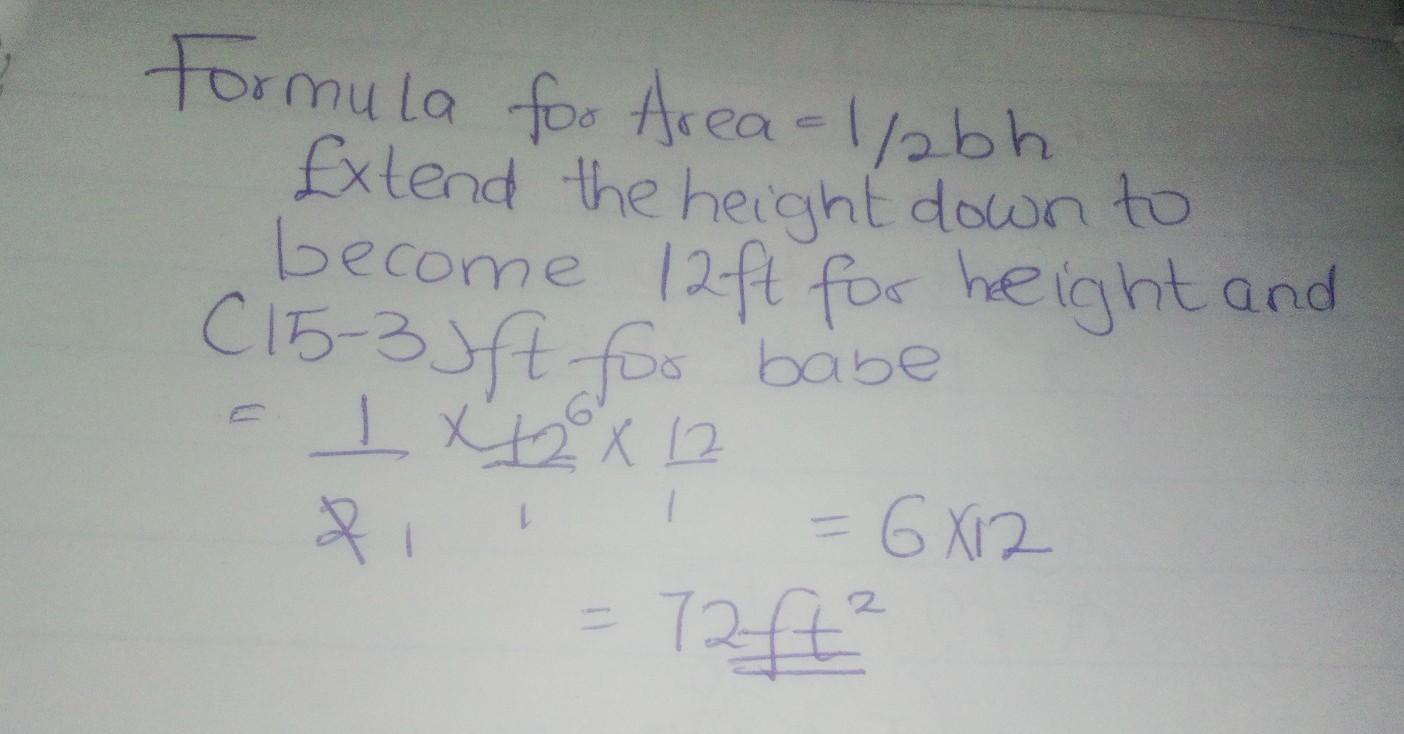 Formula for Area = 1/2bh
Extend the height down to
become 12ft for height and
(15-3)ft for babe
= 1/2 1 × 12 6/1 × 12/1
= 6 X12
= 72ft²